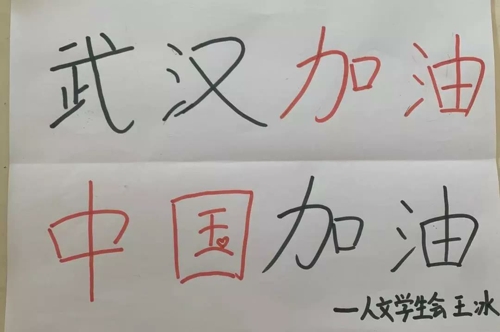 武汉加油
中国加油
—人文学生会王冰